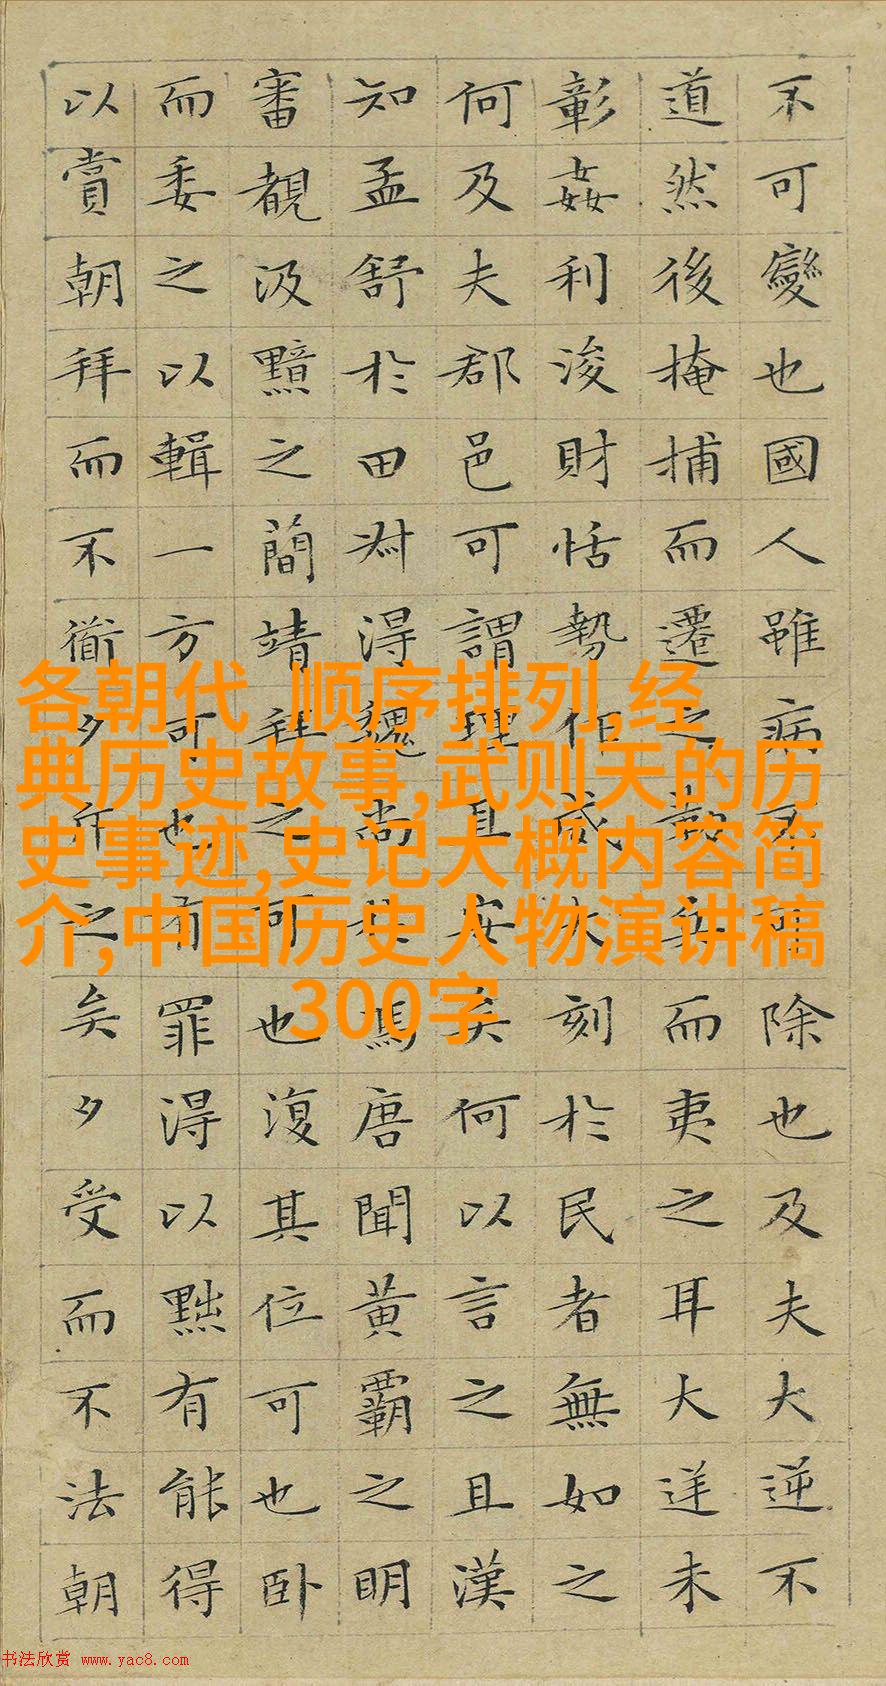 不可變也國人雖病不可除也及夫大逆不
道然後掩捕而遷之勒兵而夷之耳大逆未
彰姦利浚財恬勢作威大刻於民者無如之
何及夫郡邑可謂理且安矣何以言之且漢
知孟舒於田叔得魏尚於馮唐聞黃霸之明
審覩汲黯之簡靖拜之可也復其位可也臥
而委之以輯一方可也有罪得以黜有能得
以賞朝拜而不衜夕斥之矣夕受而不法朝
各朝代 顺序排列,经
典历史故事,武则天的历
史事迹,史记大概内容简
介,中国历史人物演讲稿
300字
书法欣赏 www.yac8.com